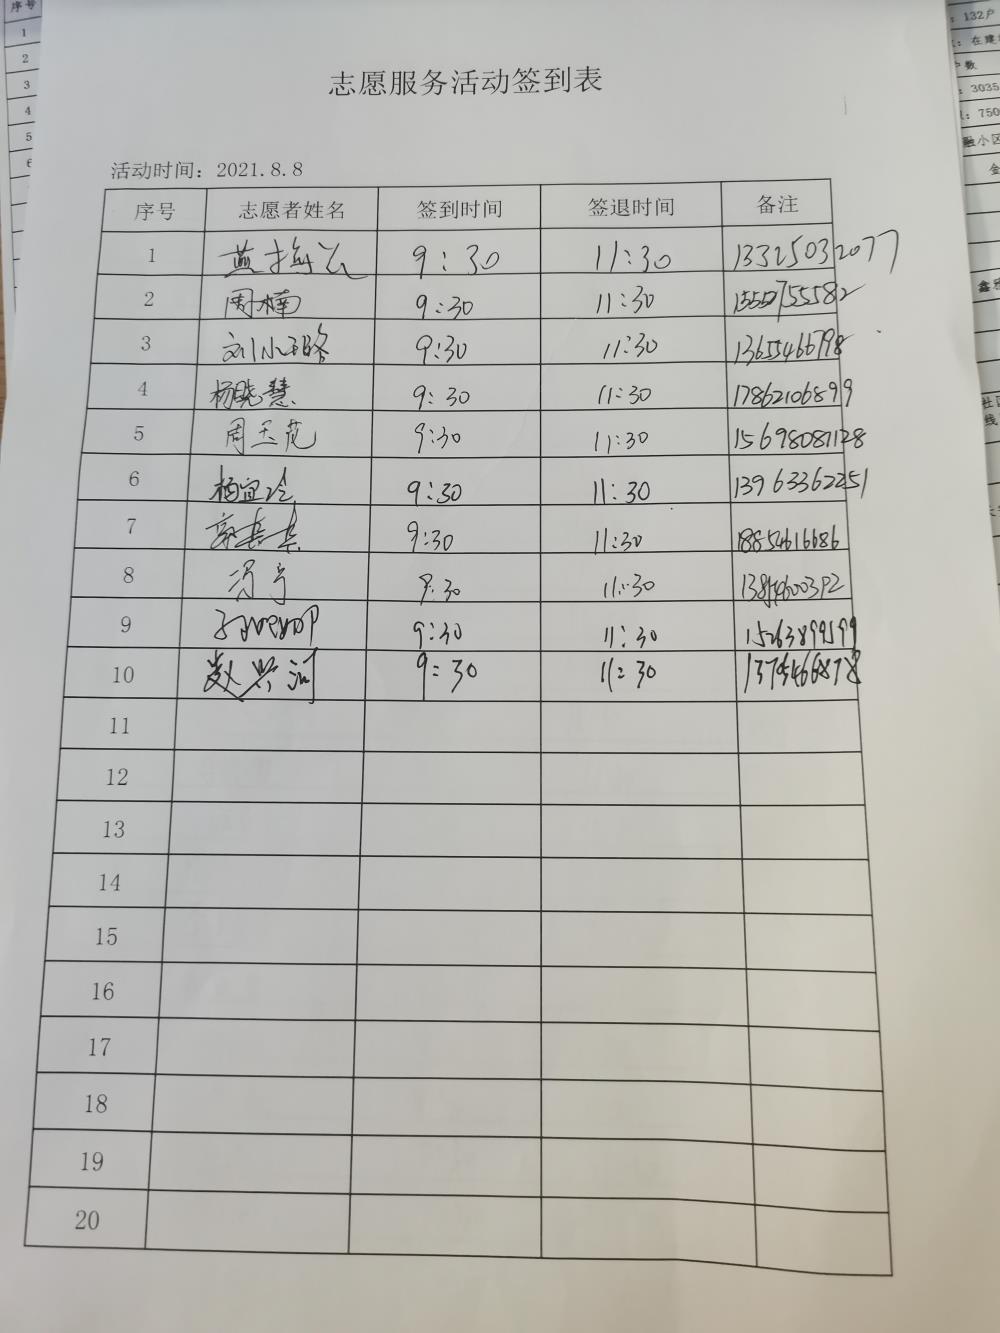 志愿服务活动签到表
活动时间: 2021.8.8
序号 志愿者姓名 签到时间 签退时间 备注
1 蓝梅云 9:30 11:30 13325032077
2 周楠 9:30 11:30 15550755582
3 刘小璐 9:30 11:30 13655466798
4 杨晓慧 9:30 11:30 17862106899
5 周玉苑 9:30 11:30 15698081128
6 杨宜玲 9:30 11:30 13963362251
7 9:30 11:30 18854616686
8 冯宁 9:30 11:30 13854600392
9 9:30 11:30 15263899599
10 赵兴河 9:30 11:30
11
12
13
14
15
16
17
18
19
20
序号
1
2
3
4
5
6
132户
在建
户数
3035
750
融小区
金
鑫
社区
线